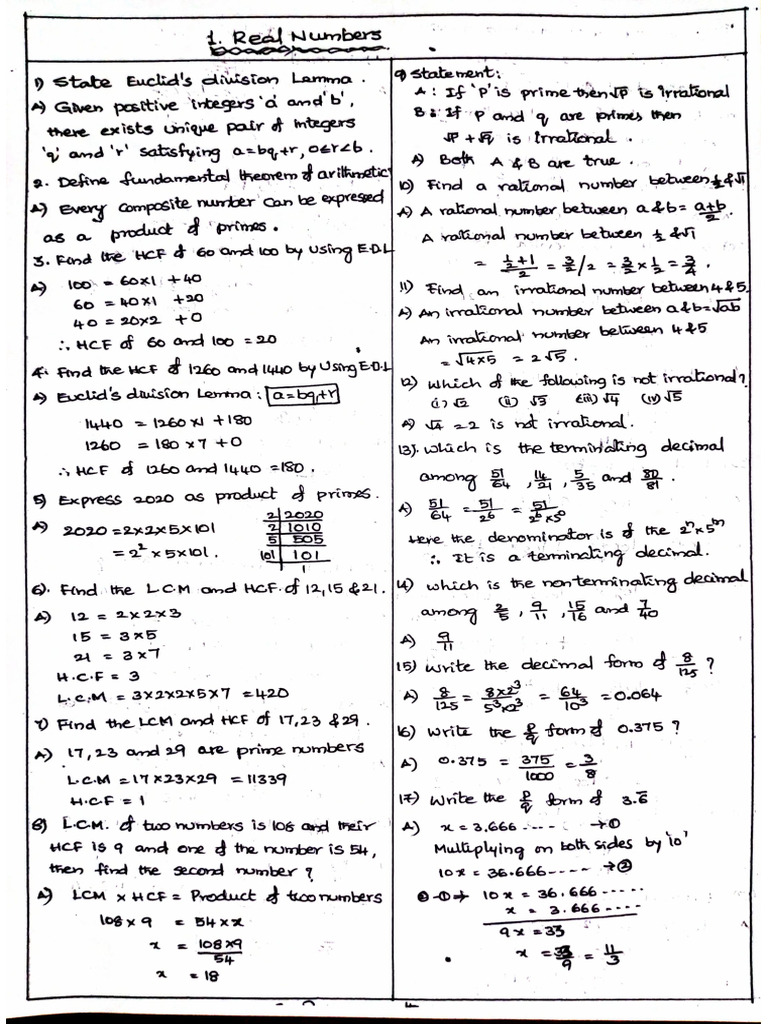 1. Real Numbers
1) State Euclid's division Lemma.
A) Given positive integers 'a' and 'b',
there exists unique pair of integers
'q' and 'r' satisfying a=bq+r, 0≤r<b.
2. Define fundamental theorem of arithmetic
A) Every composite number can be expressed
as a product of primes.
3. Find the HCF of 60 and 100 by using E.D.L
A) 100 = 60×1 + 40
60 = 40×1 + 20
40 = 20×2 + 0
∴ HCF of 60 and 100 = 20
4. Find the HCF of 1260 and 1440 by Using E.D.L
A) Euclid's division Lemma: a=bq+r
1440 = 1260×1 + 180
1260 = 180×7 + 0
∴ HCF of 1260 and 1440 = 180.
5) Express 2020 as product of primes.
A) 2020 = 2×2×5×101
= 2²×5×101.
2 | 2020
2 | 1010
5 | 505
101 | 101
1
6). Find the L.C.M and HCF of 12, 15 & 21.
A) 12 = 2×2×3
15 = 3×5
21 = 3×7
H.C.F = 3
L.C.M = 3×2×2×5×7 = 420
7) Find the LCM and HCF of 17, 23 & 29.
A) 17, 23 and 29 are prime numbers
L.C.M = 17×23×29 = 11339
H.C.F = 1
8) L.C.M. of two numbers is 108 and their
HCF is 9 and one of the number is 54,
then find the second number?
A) LCM × HCF = Product of two numbers
108×9 = 54×x
x = 108×9/54
x = 18
9) Statement:
A: If 'P' is prime then √P is irrational
B: If P and q are primes then
√P + √q is irrational.
A) Both A & B are true.
10) Find a rational number between 1/2 & √1
A) A rational number between a & b = a+b/2
A rational number between 1/2 & √1
= (1/2+1)/2 = 3/2 /2 = 3/2 × 1/2 = 3/4.
11) Find an irrational number between 4 & 5.
A) An irrational number between a & b = √ab
An irrational number between 4 & 5
= √4×5 = 2√5.
12) Which of the following is not irrational?
(i) √2 (ii) √3 (iii) √4 (iv) √5
A) √4 = 2 is not irrational.
13). Which is the terminating decimal
among 51/64, 14/21, 5/35 and 80/81.
A) 51/64 = 51/2⁶ = 51/2⁶×5⁰
Here the denominator is of the 2ⁿ×5ᵐ
∴ It is a terminating decimal.
14) Which is the non terminating decimal
among 2/5, 9/11, 15/16 and 7/40
A) 9/11
15) Write the decimal form of 8/125?
A) 8/125 = 8×2³/5³×2³ = 64/10³ = 0.064
16) Write the p/q form of 0.375?
A) 0.375 = 375/1000 = 3/8
17) Write the p/q form of 3.6̅
A) x = 3.666.... →①
Multiplying on both sides by '10'
10x = 36.666..... →②
②-①→ 10x = 36.666.....
x = 3.666....
9x = 33
x = 33/9 = 11/3